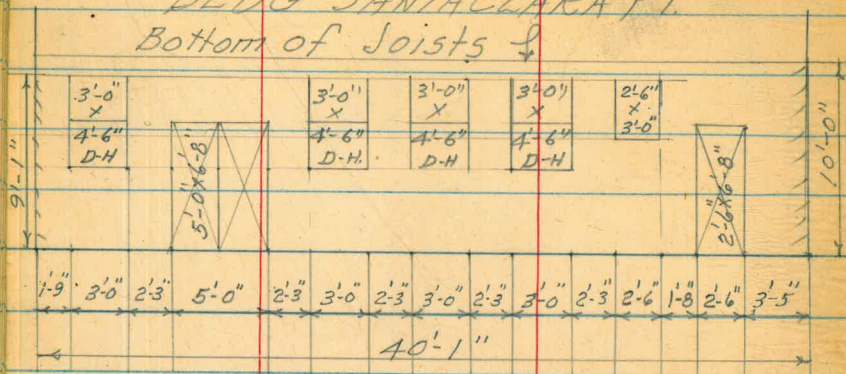 BLDG SANTACLARA Pl.
Bottom of Joists
3'-0"
X
4'-6"
D-H
5'-0"x6'-8"
3'-0"
X
4'-6"
D-H.
3'-0"
X
4'-6"
D-H
3'-0"
X
4'-6"
D-H
2'-6"
X
3'-0"
2'-6"x6'-8"
9'-1"
10'-0"
1'-9" 3'-0" 2'-3" 5'-0" 2'-3" 3'-0" 2'-3" 3'-0" 2'-3" 3'-0" 2'-3" 2'-6" 1'-8" 2'-6" 3'-5"
40'-1"